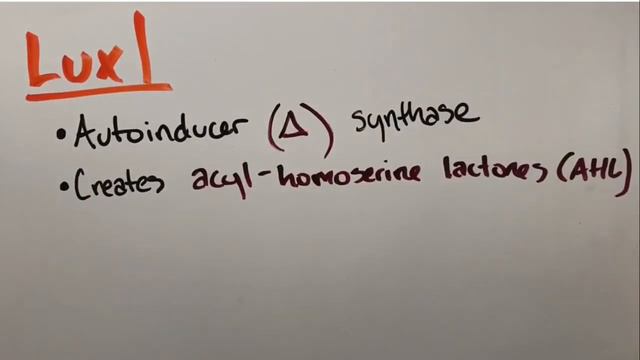 LuxI
• Autoinducer (Δ) synthase
• Creates acyl-homoserine lactones (AHL)